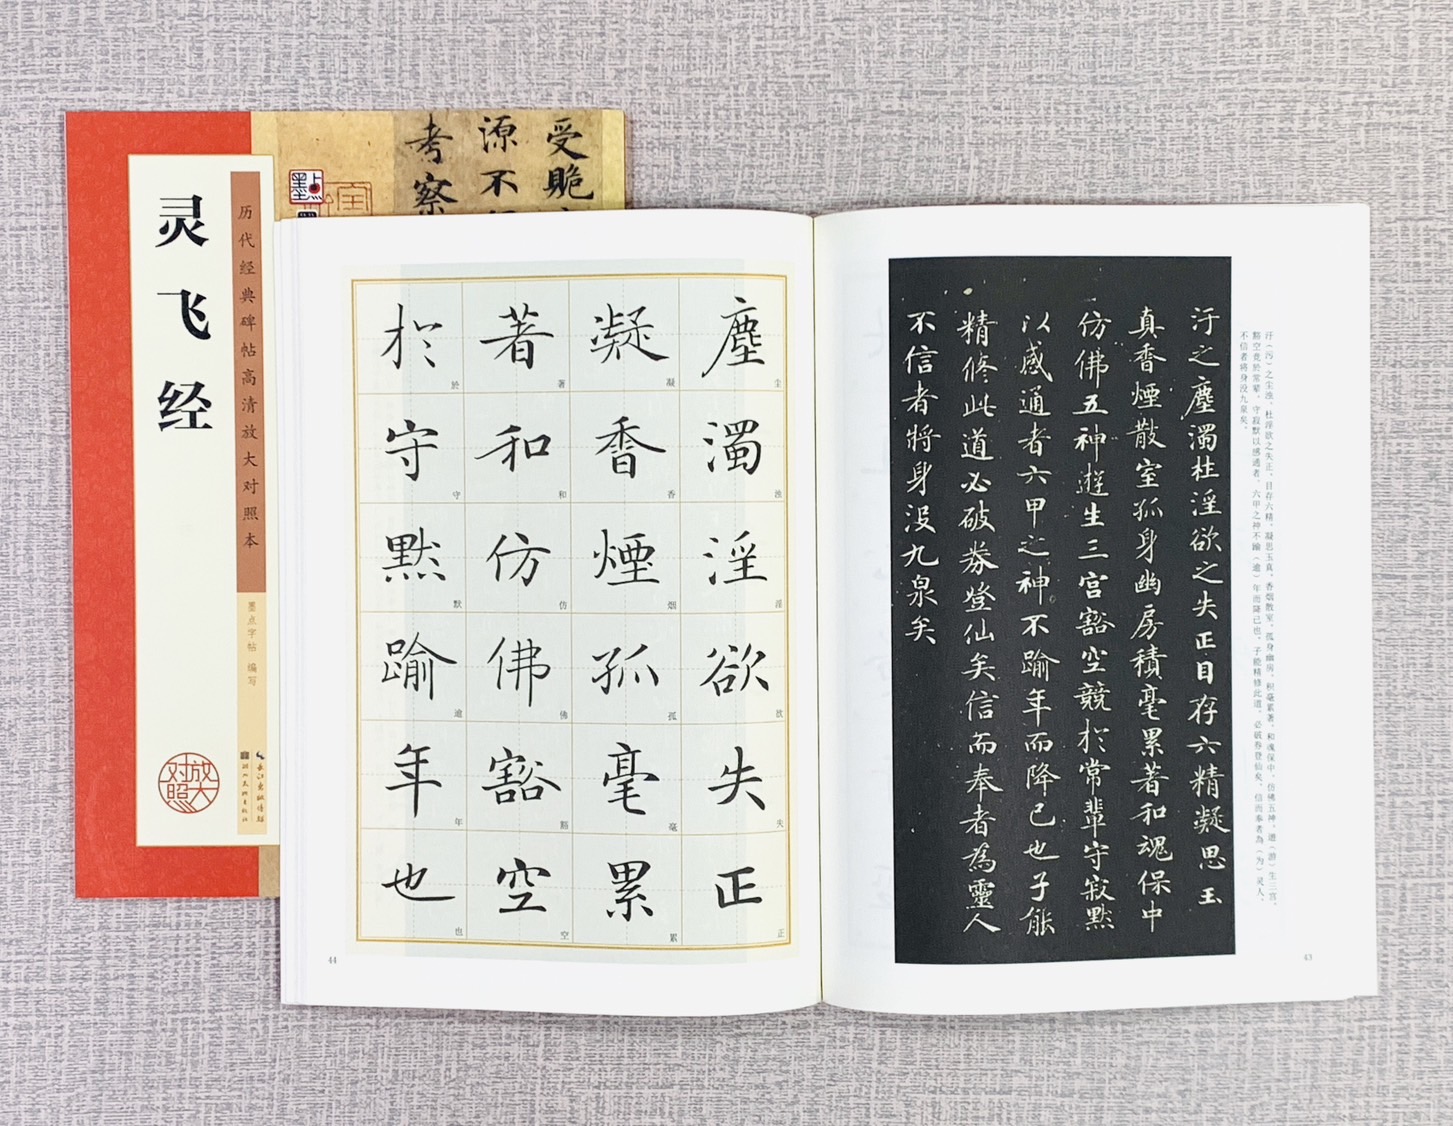 灵飞经
历代经典碑帖高清放大对照本
墨点字帖 编写
放大
对照
长江出版传媒
湖北美术出版社
墨点
受赡
源不
考察
塵濁淫欲失正
尘浊淫欲失正
凝香煙孤毫累
凝香烟孤毫累
著和仿佛豁空
著和仿佛豁空
於守默踰年也
於守默逾年也
44
汙之塵濁杜淫欲之失正目存六精凝思玉
真香煙散室孤身幽房積毫累著和魂保中
仿佛五神遊生三宫豁空競於常輩守寂默
以感通者六甲之神不踰年而降已也子能
精修此道必破券登仙矣信而奉者為靈人
不信者將身没九泉矣
汙（污）之尘浊，杜淫欲之失正，目存六精，凝思玉真，香烟散室，孤身幽房，积毫累著，和魂保中，仿佛五神，遊（游）生三宫，
豁空竞於常辈，守寂默以感通者，六甲之神不踰（逾）年而降已也，子能精修此道，必破券登仙矣，信而奉者為（为）灵人，
不信者将身没九泉矣。
43